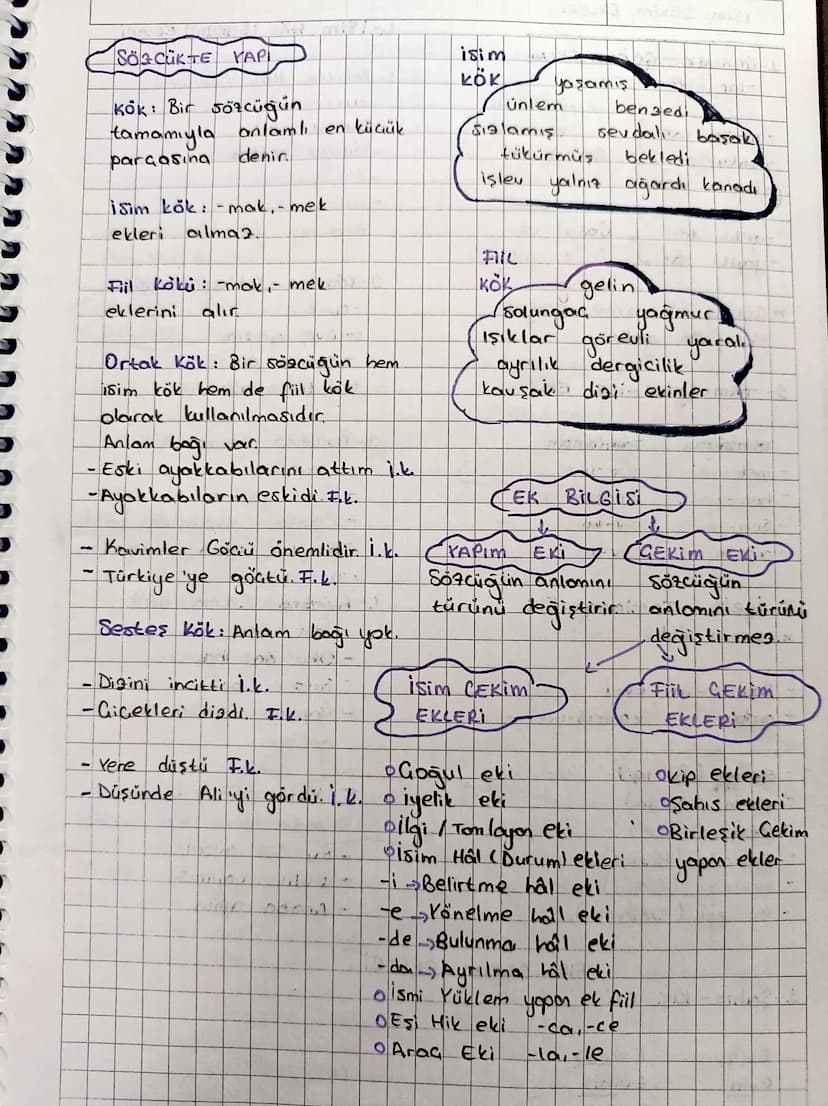 SÖZCÜKTE YAPI
KÖK: Bir sözcüğün
tamamıyla anlamlı en küçük
parçasına denir.
İsim kök: -mak, -mek
ekleri almaz.
Fiil Kökü: -mak, -mek
eklerini alır.
Ortak Kök: Bir sözcüğün hem
isim kök hem de fiil kök
olarak kullanılmasıdır.
Anlam bağı var.
- Eski ayakkabılarını attım i.k.
- Ayakkabıların eskidi F.k.
- Kavimler Göçü önemlidir. i.k.
- Türkiye'ye göçtü. F.k.
Sesteş Kök: Anlam bağı yok.
- Dizini incitti i.k.
- Çiçekleri dizdi. F.k.
- Yere düştü F.k.
- Düşünde Ali'yi gördü. i.k.
isim
KÖK
yaşamış
ünlem benzedi
sızlamış sevdalı başak
tükürmüş bekledi
işlev yalnız ağardı kanadı
FİİL
KÖK
gelin
solungaç yağmur
ışıklar görevli yaralı
ayrılık dergicilik
kavşak dizi ekinler
EK BİLGİSİ
YAPIM EKİ
Sözcüğün anlamını
türünü değiştirir.
ÇEKİM EKİ
Sözcüğün
anlamını türünü
değiştirmez.
İSİM ÇEKİM
EKLERİ
o Çoğul eki
o iyelik eki
o ilgi / Tamlayan eki
o İsim Hâl (Durum) ekleri
-i → Belirtme hâl eki
-e → Yönelme hâl eki
-de → Bulunma hâl eki
-da → Ayrılma hâl eki
o İsmi Yüklem yapan ek fiil
o Eşi Hik eki -ca, -ce
o Araç Eki -la, -le
FİİL ÇEKİM
EKLERİ
o Kip ekleri
o Şahıs ekleri
o Birleşik Çekim
yapan ekler